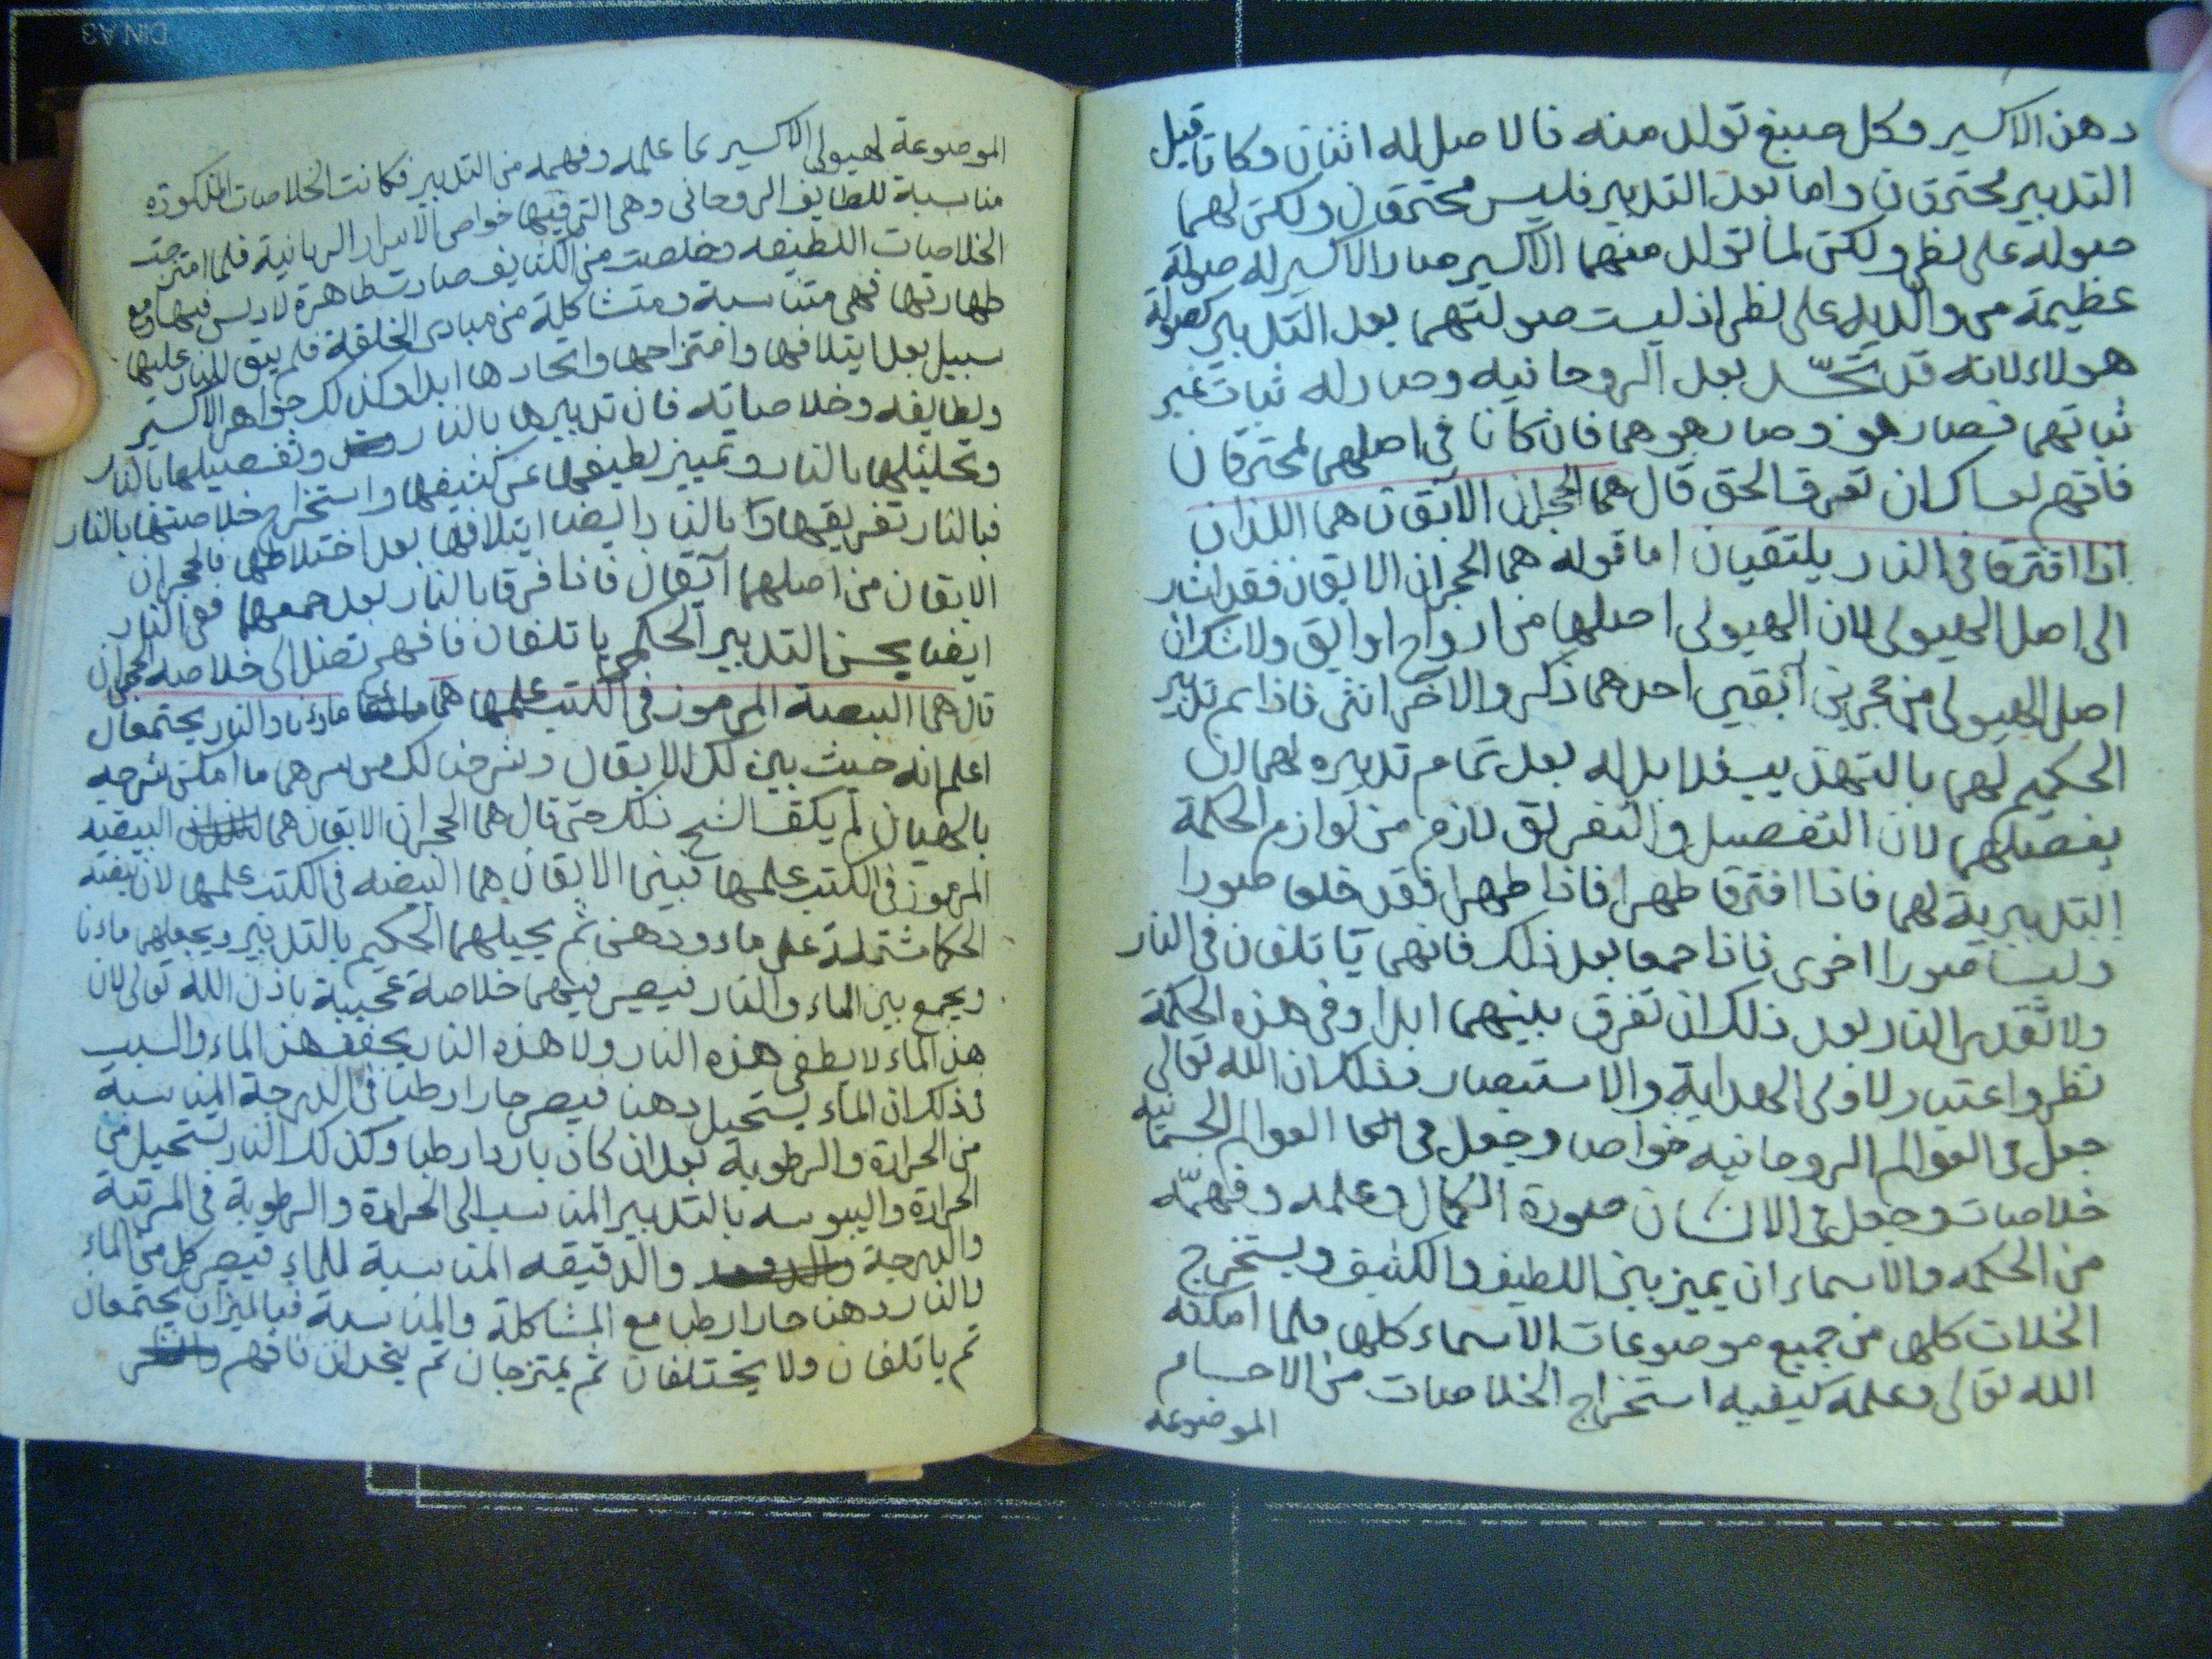 دهن الاكسير وكل صبغ تولد منه فالاصل له اثنان وكانا قبل
التدبير محترقان واما بعد التدبير فليس محترقان ولكن لهما
صولة على نظر ولكن لما تولد منهما الاكسير صار الاكسير له صولة
عظيمة من والديه على نظر اذ ليست صولتهما بعد التدبير كصولة
هولاء لانه قد تجسد بعد الروحانيه وصار له ثبات غير
ثباتهما فصار هو وصار هو هما فان كانا في اصلهما لمحترقان
فافهم لساكران تعرف الحق قال هما الحجران الآبقان هما اللذان
اذا افترقا في النار يلتقيان اما قوله هما الحجران الابقان فقد اشار
الى اصل الهيولى لان الهيولى اصلها من ارواح اوابق ولا شك ان
اصل الهيولى من حجرين آبقين احدهما ذكر والاخر انثى فاذا تم تدبير
الحكيم لهما بالتهذيب فلا بد له بعد تمام تدبيره لهما ان
يفصلهما لان التفصيل والتفريق لازم من لوازم الحكمة
التدبيرية لهما فاذا افترقا طهرا فاذا طهرا فقد خلعا صورا
ولبسا صورا اخرى فاذا جمعا بعد ذلك فانهما يتاتلفان في النار
ولا تقدر النار بعد ذلك ان تفرق بينهما ابدا وفي هذه الحكمة
نظر واعتبار لاولى الهداية والاستبصار فذلك ان الله تعالى
جعل في العوالم الروحانيه خواص وجعل في العوالم الجسمانيه
خلاصات وجعل في الانسان صورة الكمال وعلمه وفهمه
من الحكمه والاسماء ان يميز بين اللطيف والكثيف ويستخرج
الخلاات كلها من جميع موضوعات الاسماء كلها فلما امكنه
الله تعالى وعلمه كيفيه استخراج الخلاصات من الاجسام
الموضوعه
الموضوعة لهيولى الاكسير بما علمه وفهمه من التدبير فكانت الخلاصات المذكوره
مناسبة للطايف الروحانى وهى التى فيها خواص الاسرار الربانية فلما امتزجت
الخلاصات اللطيفه وخلصت من الكثايف صارت طاهرة لا دنس فيها ومع
طهارتها فهى متناسبة ومتشاكلة من مبادى الخلقة فلم يبق للنار عليها
سبيل بعد ايتلافها وامتزاجها واتحادها ابدا وكذلك جواهر الاكسير
ولطايفه وخلاصاته فان تدبيرها بالنار وتفصيلها بالنار
وتحليلها بالنار وتمييز لطيفها عن كثيفها واستخراج خلاصتها بالنار
فبالنار تفريقها وبالنار ايضا ايتلافها بعد اختلاطها فالحجران
الابقان من اصلهما آبقان فاذا فرقا بالنار بعد جمعهما ففى النار
ايضا بحسن التدبير الحكمي ياتلفان فافهم تصل الى خلاصه الحجران
قال هما البيضة المرموز في الكتب علمها هما ماؤنا والنار يجتمعان
اعلم انه حيث بين لك الابقان وشرحنا لك من سرهما ما امكن شرحه
بالهيان لم يكف الشيخ ذلك حتى قال هما الحجران الابقان هما البيضه
المرموز في الكتب علمها فبنى الابقان هما البيضه في الكتب علمها لان بيضه
الحكما مشتملة على ماء ودهن ثم يحيلهما الحكيم بالتدبير ويجعلهما ماءنا
ويجمع بين الماء والنار فيصير فيهما خلاصة عجيبة باذن الله تعالى لان
هذا الماء لا يطفي هذه النار ولا هذه النار يجفف هذا الماء والسبب
فذلك ان الماء يستحيل دهنا فيصر حارا رطبا في الدرجة المناسبة
من الحرارة والرطوبة بعد ان كان باردا رطبا وكذلك النار تستحيل من
الحرارة واليبوسه بالتدبير المناسب الى الحرارة والرطوبة في المرتبة
والدرجة والدقيقه المناسبة للماء فيصر كل من الماء
والنار دهنا حارا رطبا مع المشاكلة والمناسبة فبالميزان يجتمعان
ثم ياتلفان ولا يختلفان ثم يمتزجان ثم يتحدان فافهم